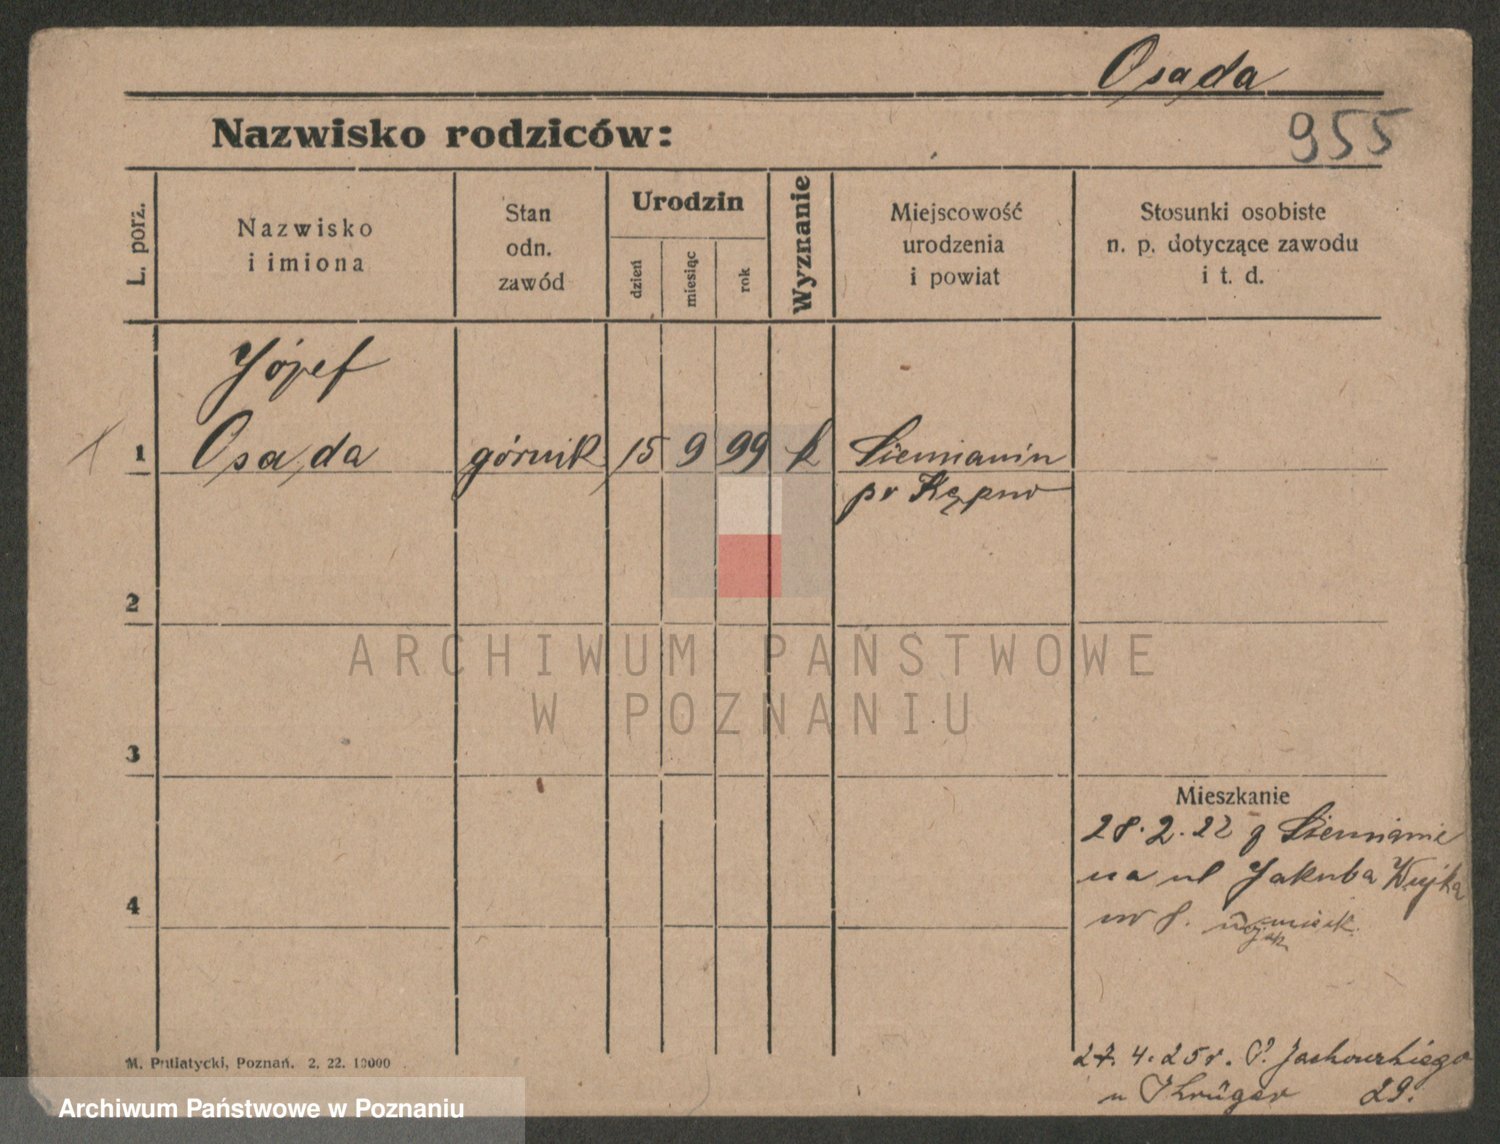 Osada
955
Nazwisko rodziców:
L. porz.
Nazwisko
i imiona
Stan
odn.
zawód
Urodzin
dzień
miesiąc
rok
Wyznanie
Miejscowość
urodzenia
i powiat
Stosunki osobiste
n. p. dotyczące zawodu
i t. d.
Józef
1 Osada górnik 15 9 99 k Siemianin
pr Kępno
2
ARCHIWUM PAŃSTWOWE
W POZNANIU
3
Mieszkanie
28.2.22 z Siemianic
na ul Jakuba Wujka
4
nr 8.
M. Putiatycki, Poznań. 2. 22. 10000
27. 4. 25 r. P. Jackowskiego
u Krüger 29.
Archiwum Państwowe w Poznaniu